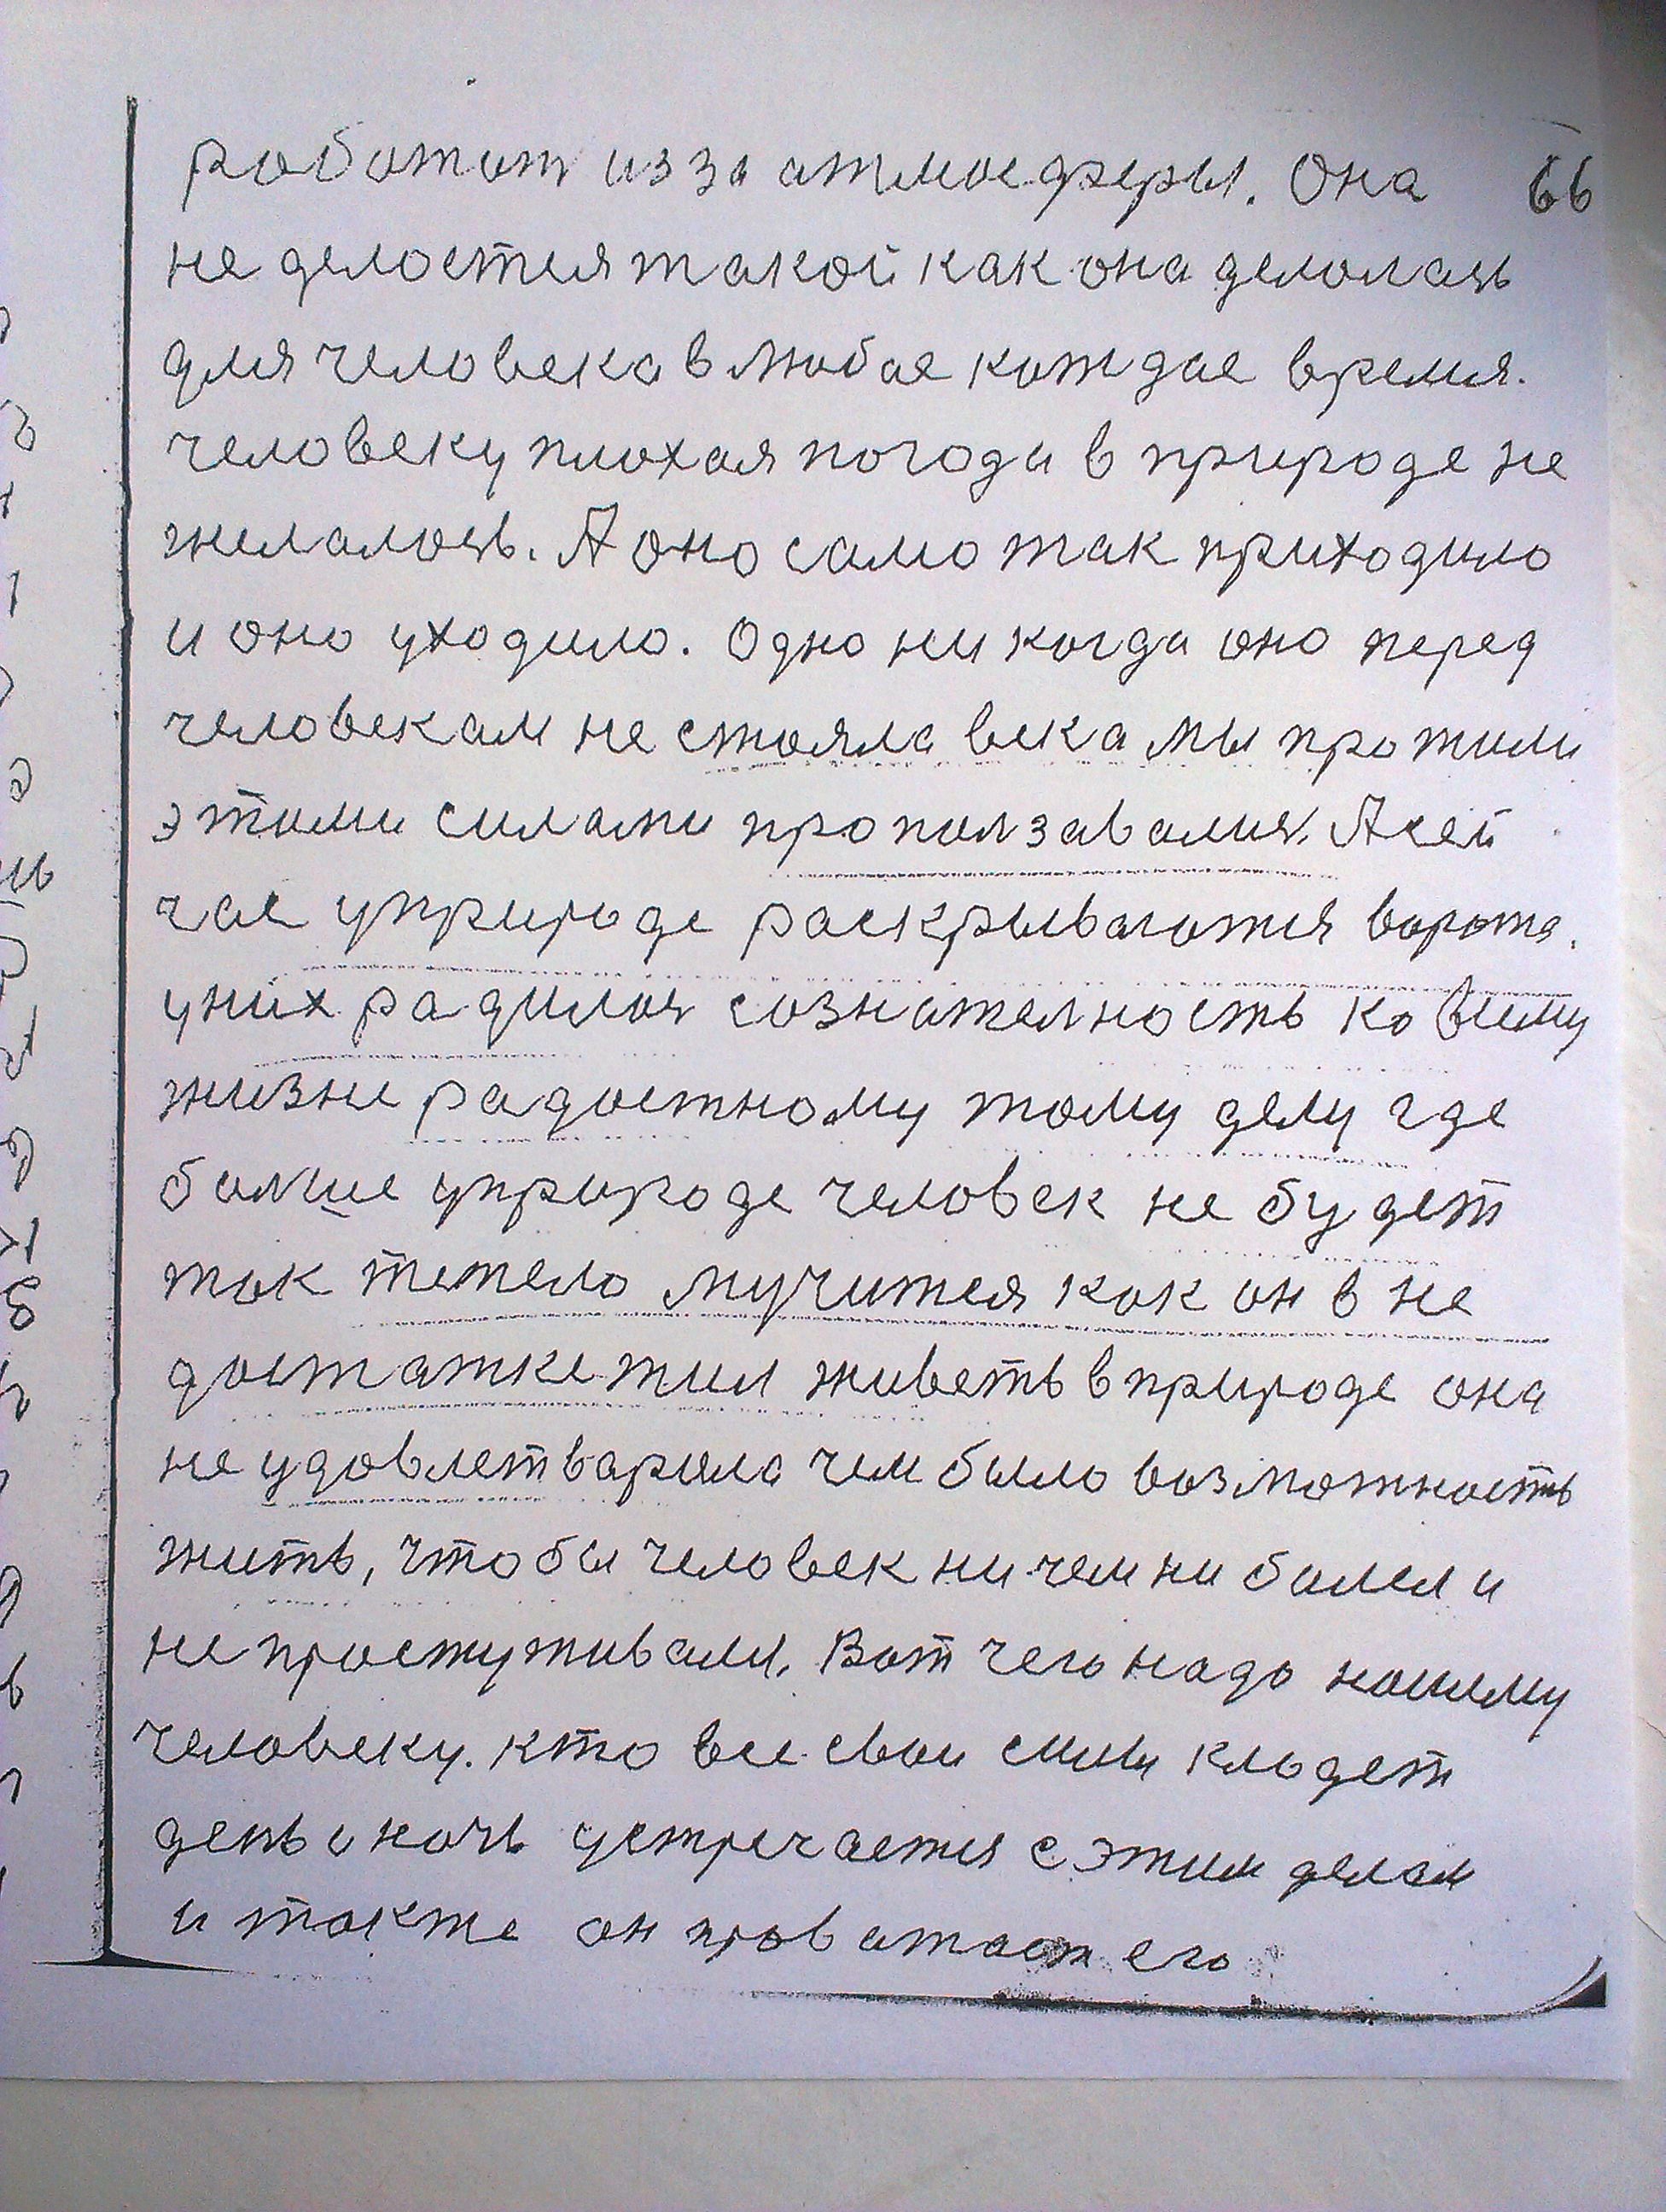 работат из за атмосферы. Она 66
не делостся такой как она делолась
для человека в любое кождае время.
человеку плохая погода в природе не
желалось. А оно само так приходило
и оно уходило. Одно никогда оно перед
человекам не стояла века мы прожили
этими силами прополззавались. А сей
час у природе раскрываются ворота.
у них радилось сознателность ко всему
жизне радостному тому делу где
больше у природе человек не будет
ток тежело мучится как он в не
достатке жил живеть в природе она
не удовлетварила чем было возможность
жить, что бы человек ни чем ни болел и
не простуживалс. Вот чего надо нашему
человеку. кто все свои силы кладет
день и ночь устречается с этим делам
и также он проватаст его